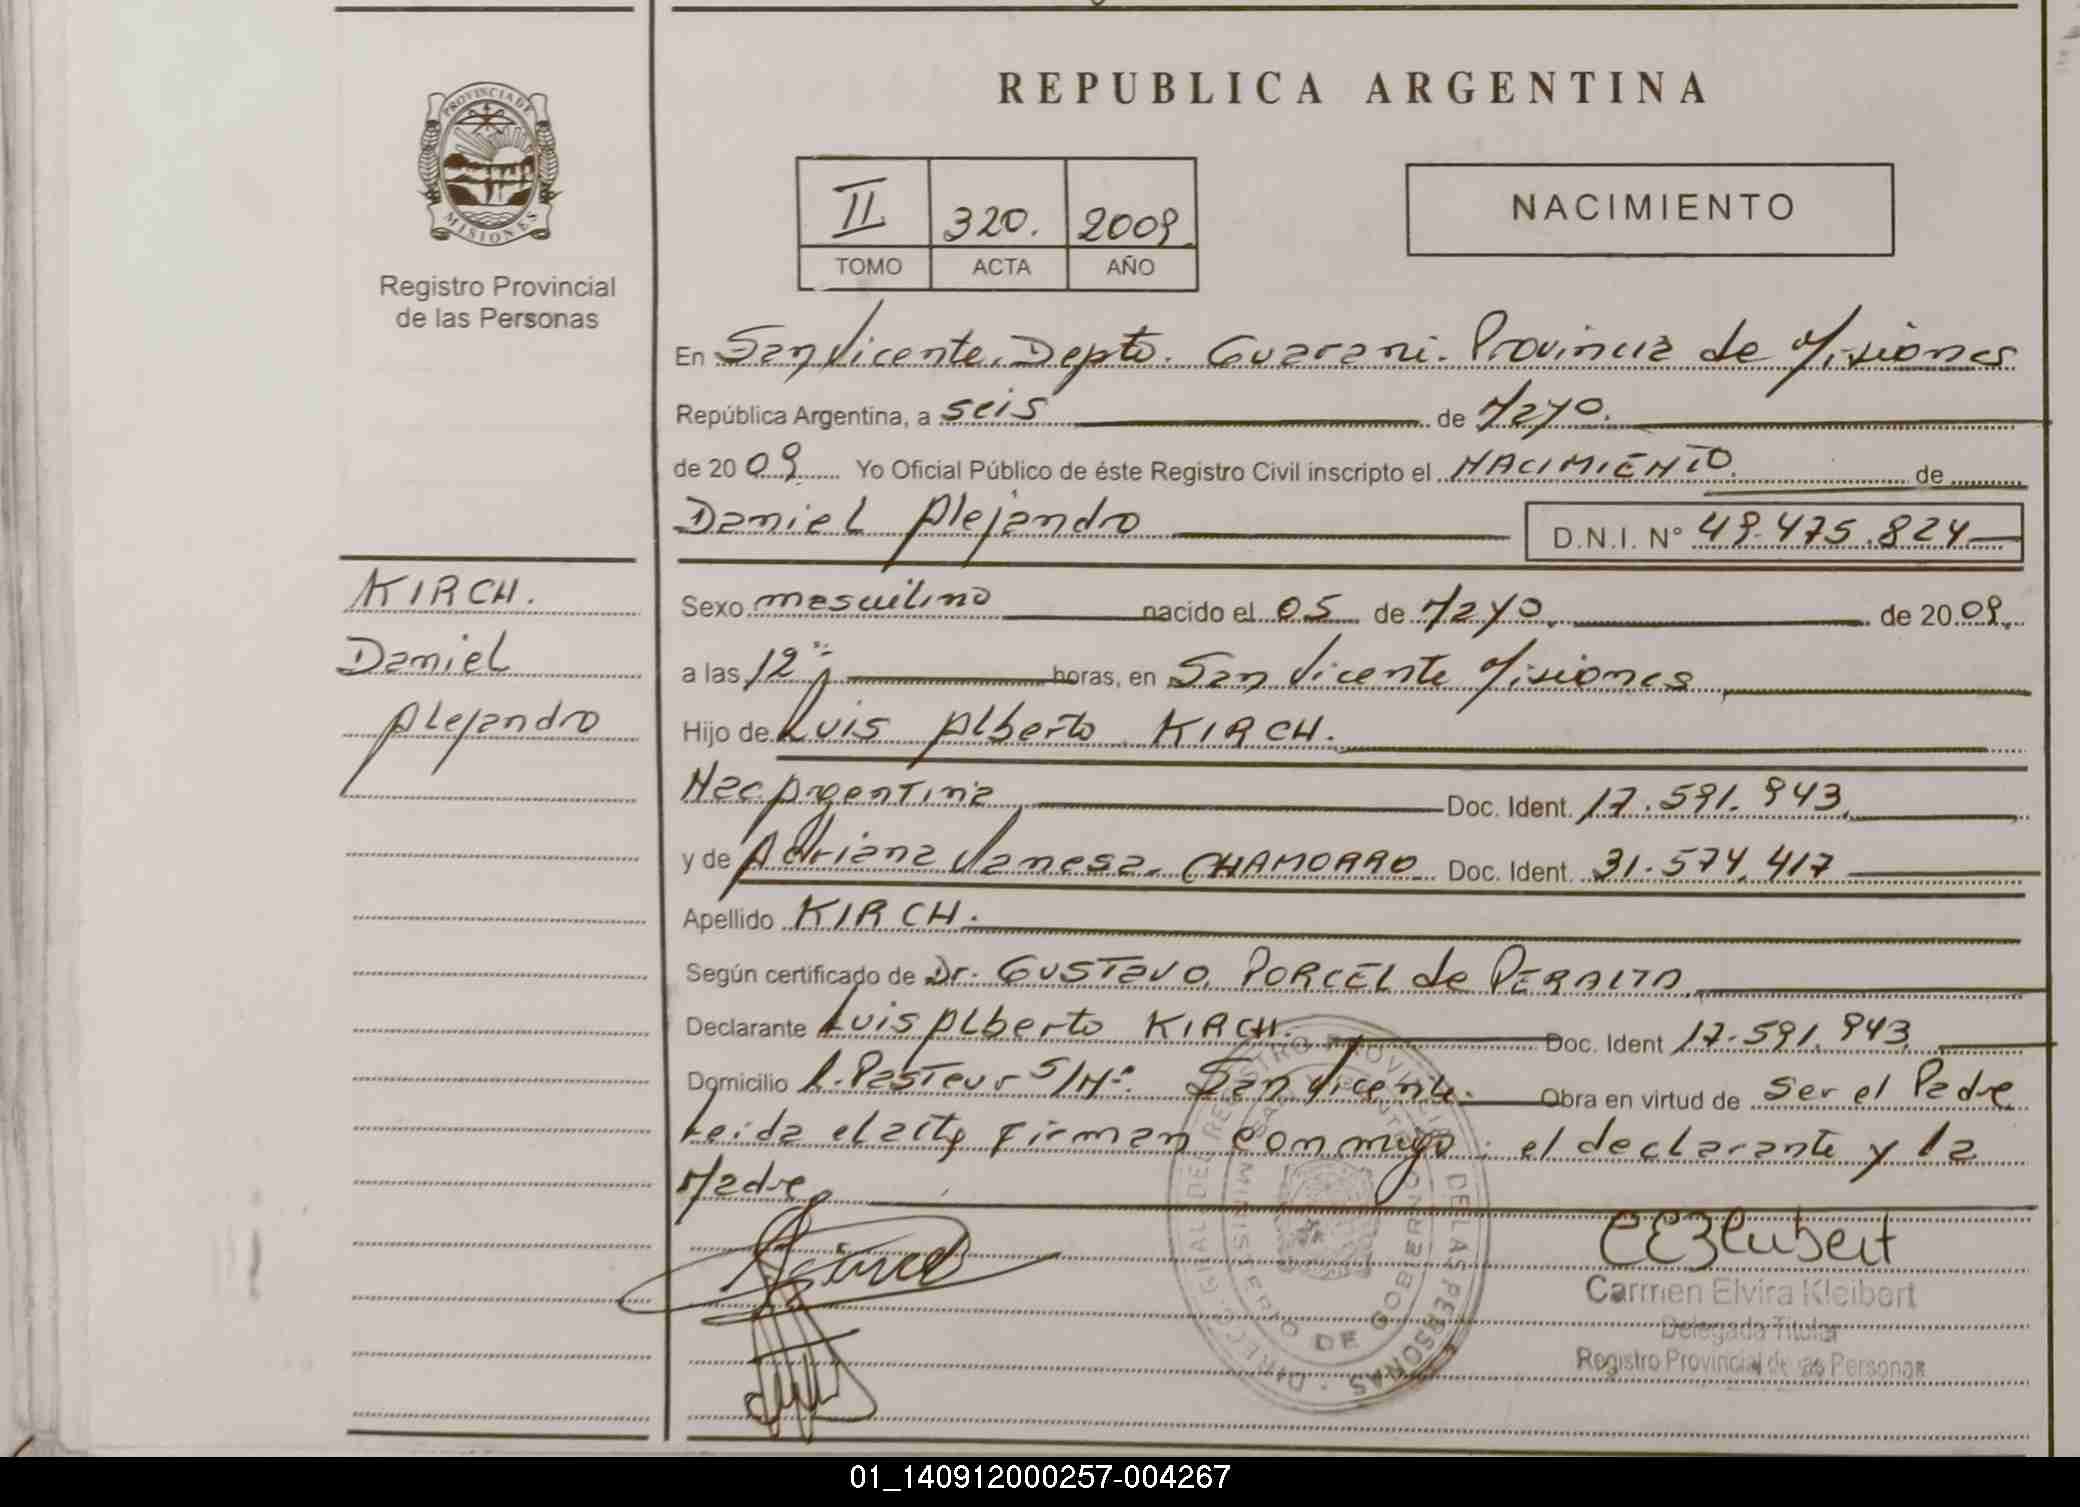 REPUBLICA ARGENTINA
PROVINCIA DE
MISIONES
Registro Provincial
de las Personas
II 320. 2009
TOMO ACTA AÑO
NACIMIENTO
En San Vicente. Depto. Guarani. Provincia de Misiones
República Argentina, a seis de Mayo.
de 2009 Yo Oficial Público de éste Registro Civil inscripto el NACIMIENTO. de
Daniel Alejandro D.N.I. N° 49.475.824
KIRCH.
Daniel
Alejandro
Sexo masculino nacido el 05 de Mayo. de 2009.
a las 12 horas, en San Vicente Misiones
Hijo de Luis Alberto KIRCH.
Nac. Argentina Doc. Ident. 17.591.943
y de Adriana Vanesa CHAMORRO Doc. Ident. 31.574.417
Apellido KIRCH.
Según certificado de Dr. GUSTAVO PORCEL de PERALTA
Declarante Luis Alberto KIRCH. Doc. Ident 17.591.943
Domicilio L. Pasteur S/Nº. San Vicente. Obra en virtud de ser el Padre
Leida el acta firman conmigo: el declarante y la
Madre
DIRECC. GRAL DEL REGISTRO PROVINCIAL DE LAS PERSONAS
MINISTERIO DE GOBIERNO
SAN VICENTE
Carmen Elvira Kleibert
Delegada Titular
Registro Provincial de las Personas
01_140912000257-004267